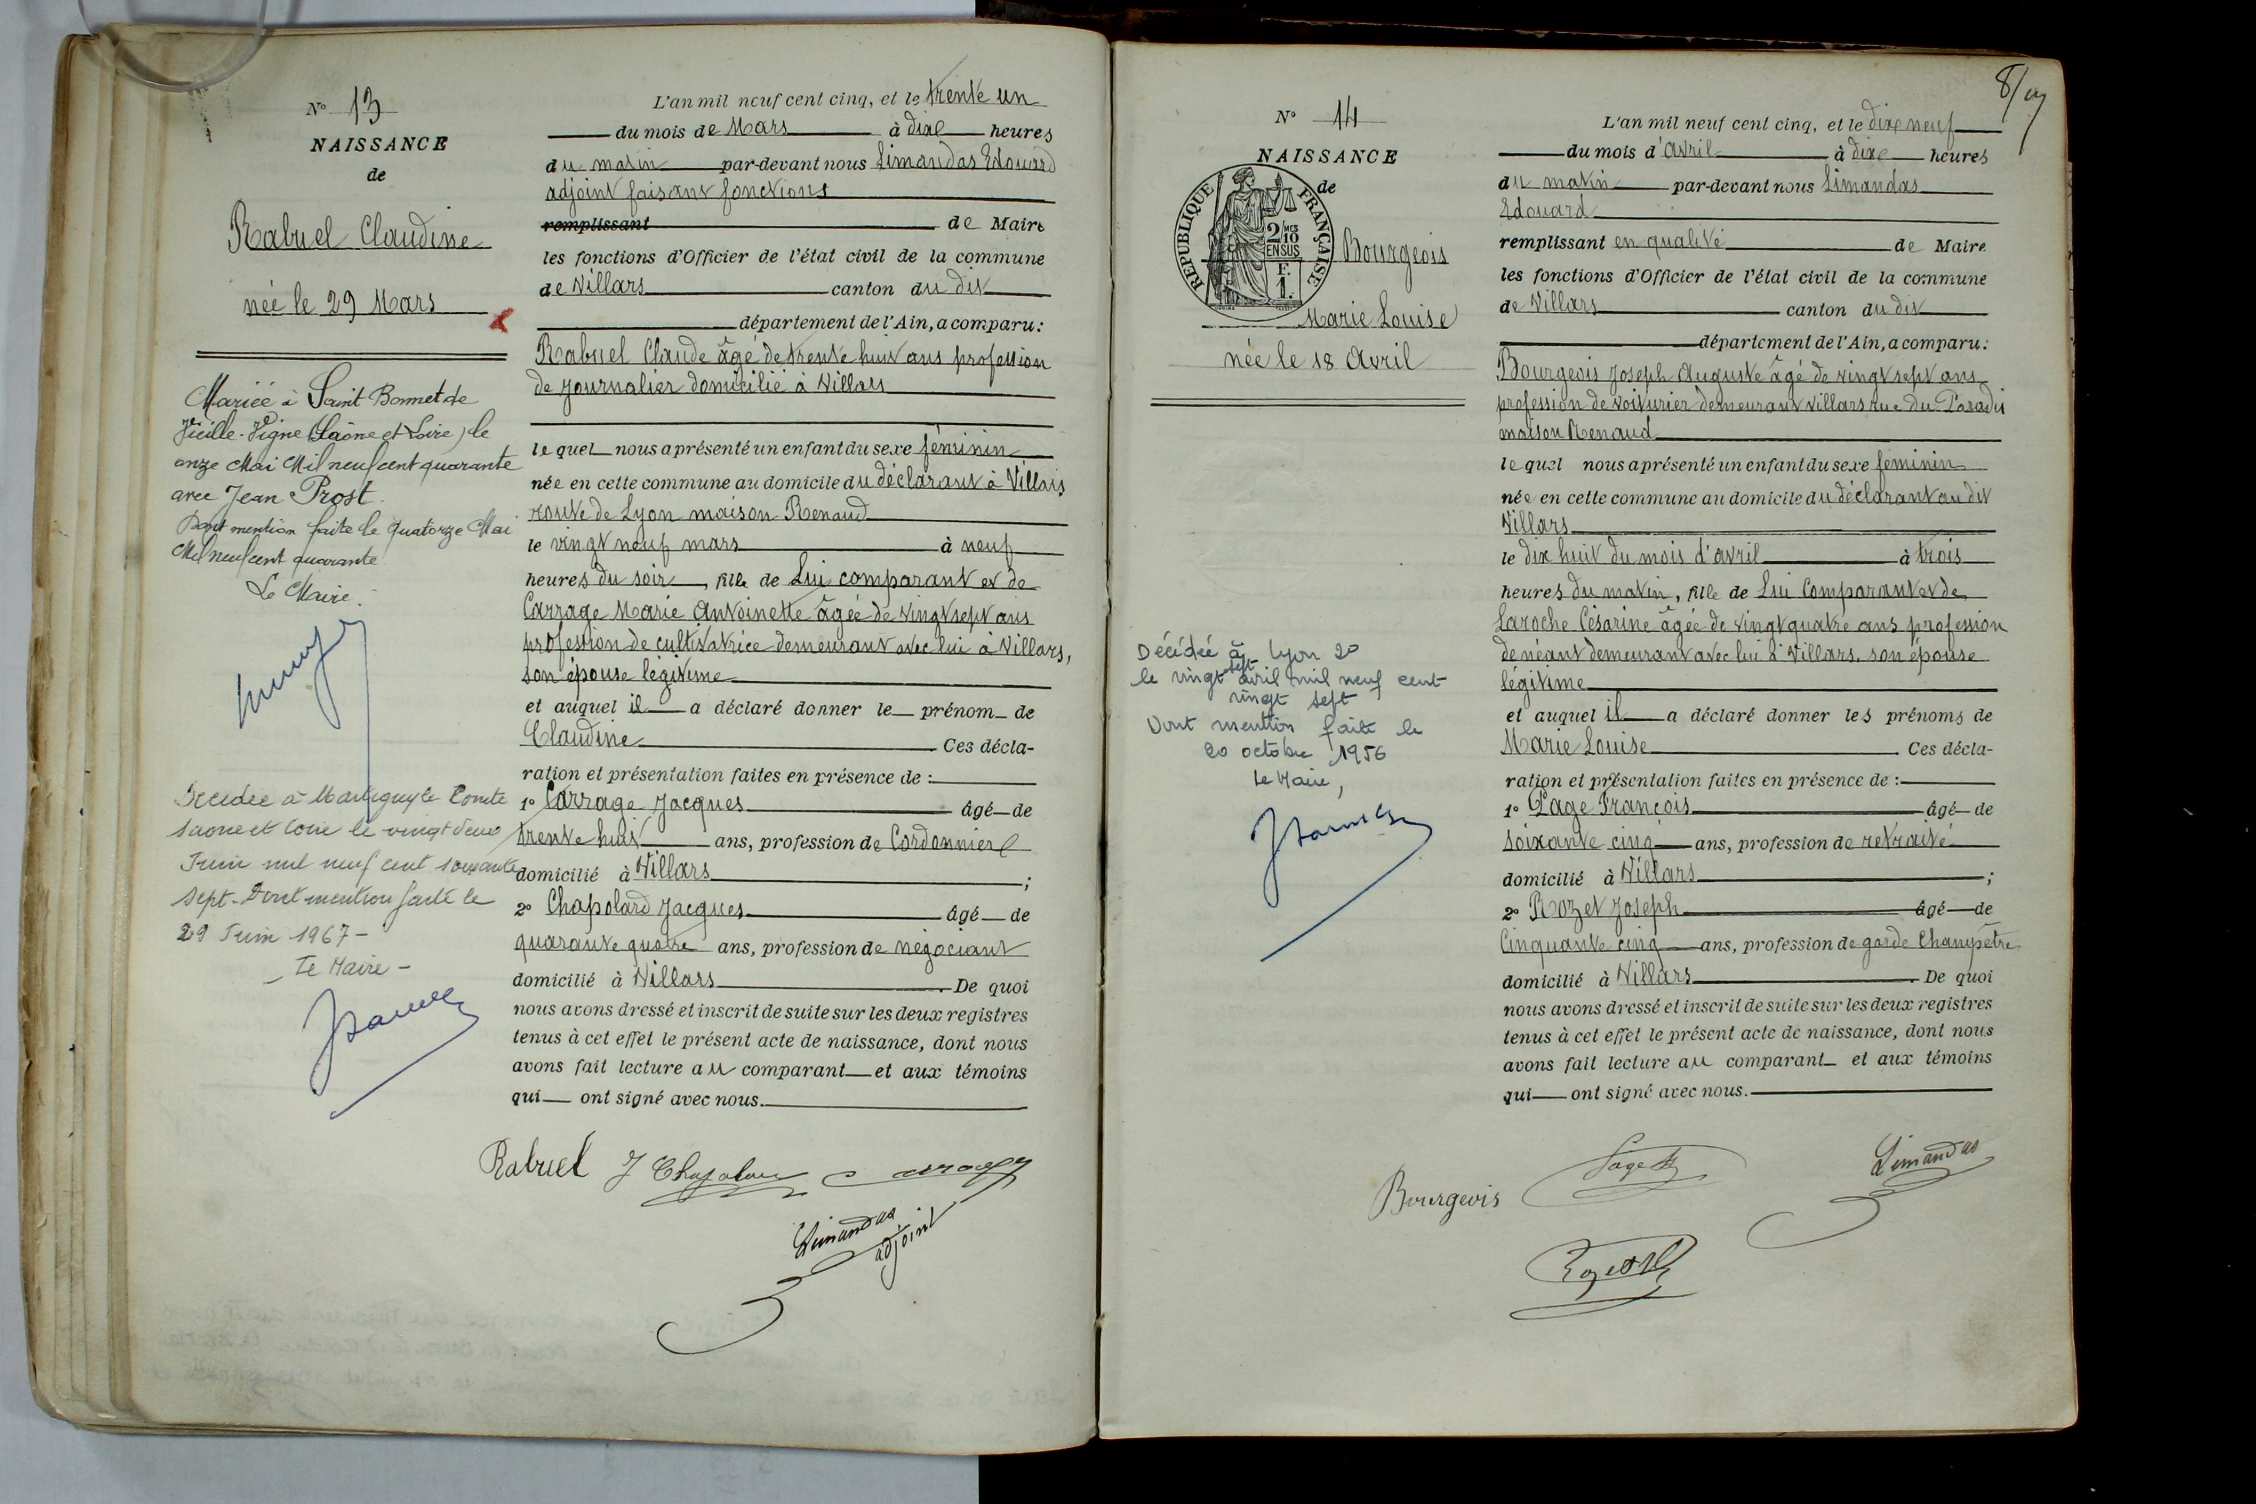 N° 13
NAISSANCE
de
Rabuel Claudine
née le 29 Mars
Mariée à Saint Bonnet de
Vieille-Vigne (Saône et Loire) le
onze Mai Mil neuf cent quarante
avec Jean Prost.
Dont mention faite le quatorze Mai
Mil neuf cent quarante
Le Maire.
Décédée à Martigny le Comte
Saone et Loire le vingt deux
Juin mil neuf cent soixante
sept - Dont mention faite le
29 Juin 1967 -
- Le Maire -
L'an mil neuf cent cinq, et le trente un
du mois de Mars à dixe heures
du matin par-devant nous Limandas Edouard
adjoint faisant fonctions
remplissant de Maire
les fonctions d'Officier de l'état civil de la commune
de Villars canton du dit
département de l'Ain, a comparu:
Rabuel Claude âgé de trente huit ans profession
de journalier domicilié à Villars
le quel nous a présenté un enfant du sexe féminin
née en cette commune au domicile du déclarant à Villars
route de Lyon maison Renaud
le vingt neuf mars à neuf
heures du soir, fille de Lui comparant et de
Carrage Marie Antoinette âgée de vingt sept ans
profession de cultivatrice demeurant avec lui à Villars,
son épouse légitime
et auquel il a déclaré donner le prénom de
Claudine Ces décla-
ration et présentation faites en présence de :
1° Carrage Jacques âgé de
trente huit ans, profession de Cordonnier
domicilié à Villars ;
2° Chapolard Jacques âgé de
quarante quatre ans, profession de négociant
domicilié à Villars. De quoi
nous avons dressé et inscrit de suite sur les deux registres
tenus à cet effet le présent acte de naissance, dont nous
avons fait lecture au comparant et aux témoins
qui ont signé avec nous.
Rabuel J Chapolard Carrage
Limandas
adjoint
8/
N° 14
NAISSANCE
de
RÉPUBLIQUE FRANÇAISE
2/10
EN SUS
F.
1.
Bourgeois
Marie Louise
née le 18 Avril
Décédée à Lyon 2°
le vingt sept avril mil neuf cent
vingt sept
Dont mention faite le
20 octobre 1956
Le Maire,
L'an mil neuf cent cinq, et le dixe neuf
du mois d'avril à dixe heures
du matin par-devant nous Limandas
Edouard
remplissant en qualité de Maire
les fonctions d'Officier de l'état civil de la commune
de Villars canton du dit
département de l'Ain, a comparu:
Bourgeois Joseph Auguste âgé de vingt sept ans
profession de voiturier demeurant Villars rue du Paradis
maison Renaud
le quel nous a présenté un enfant du sexe féminin
née en cette commune au domicile du déclarant au dit
Villars
le dix huit du mois d'avril à trois
heures du matin, fille de Lui Comparant et de
Laroche Césarine âgée de vingt quatre ans profession
de néant demeurant avec lui à Villars. son épouse
légitime
et auquel il a déclaré donner les prénoms de
Marie Louise Ces décla-
ration et présentation faites en présence de :
1° Page François âgé de
soixante cinq ans, profession de retraité
domicilié à Villars ;
2° Rozet Joseph âgé de
Cinquante cinq ans, profession de garde Champêtre
domicilié à Villars. De quoi
nous avons dressé et inscrit de suite sur les deux registres
tenus à cet effet le présent acte de naissance, dont nous
avons fait lecture au comparant et aux témoins
qui ont signé avec nous.
Page Limandas
Bourgeois
Rozet